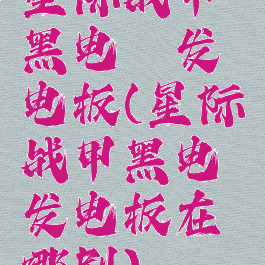 星际战甲
黑电 发
电板(星际
战甲黑电
发电板在
哪刷)